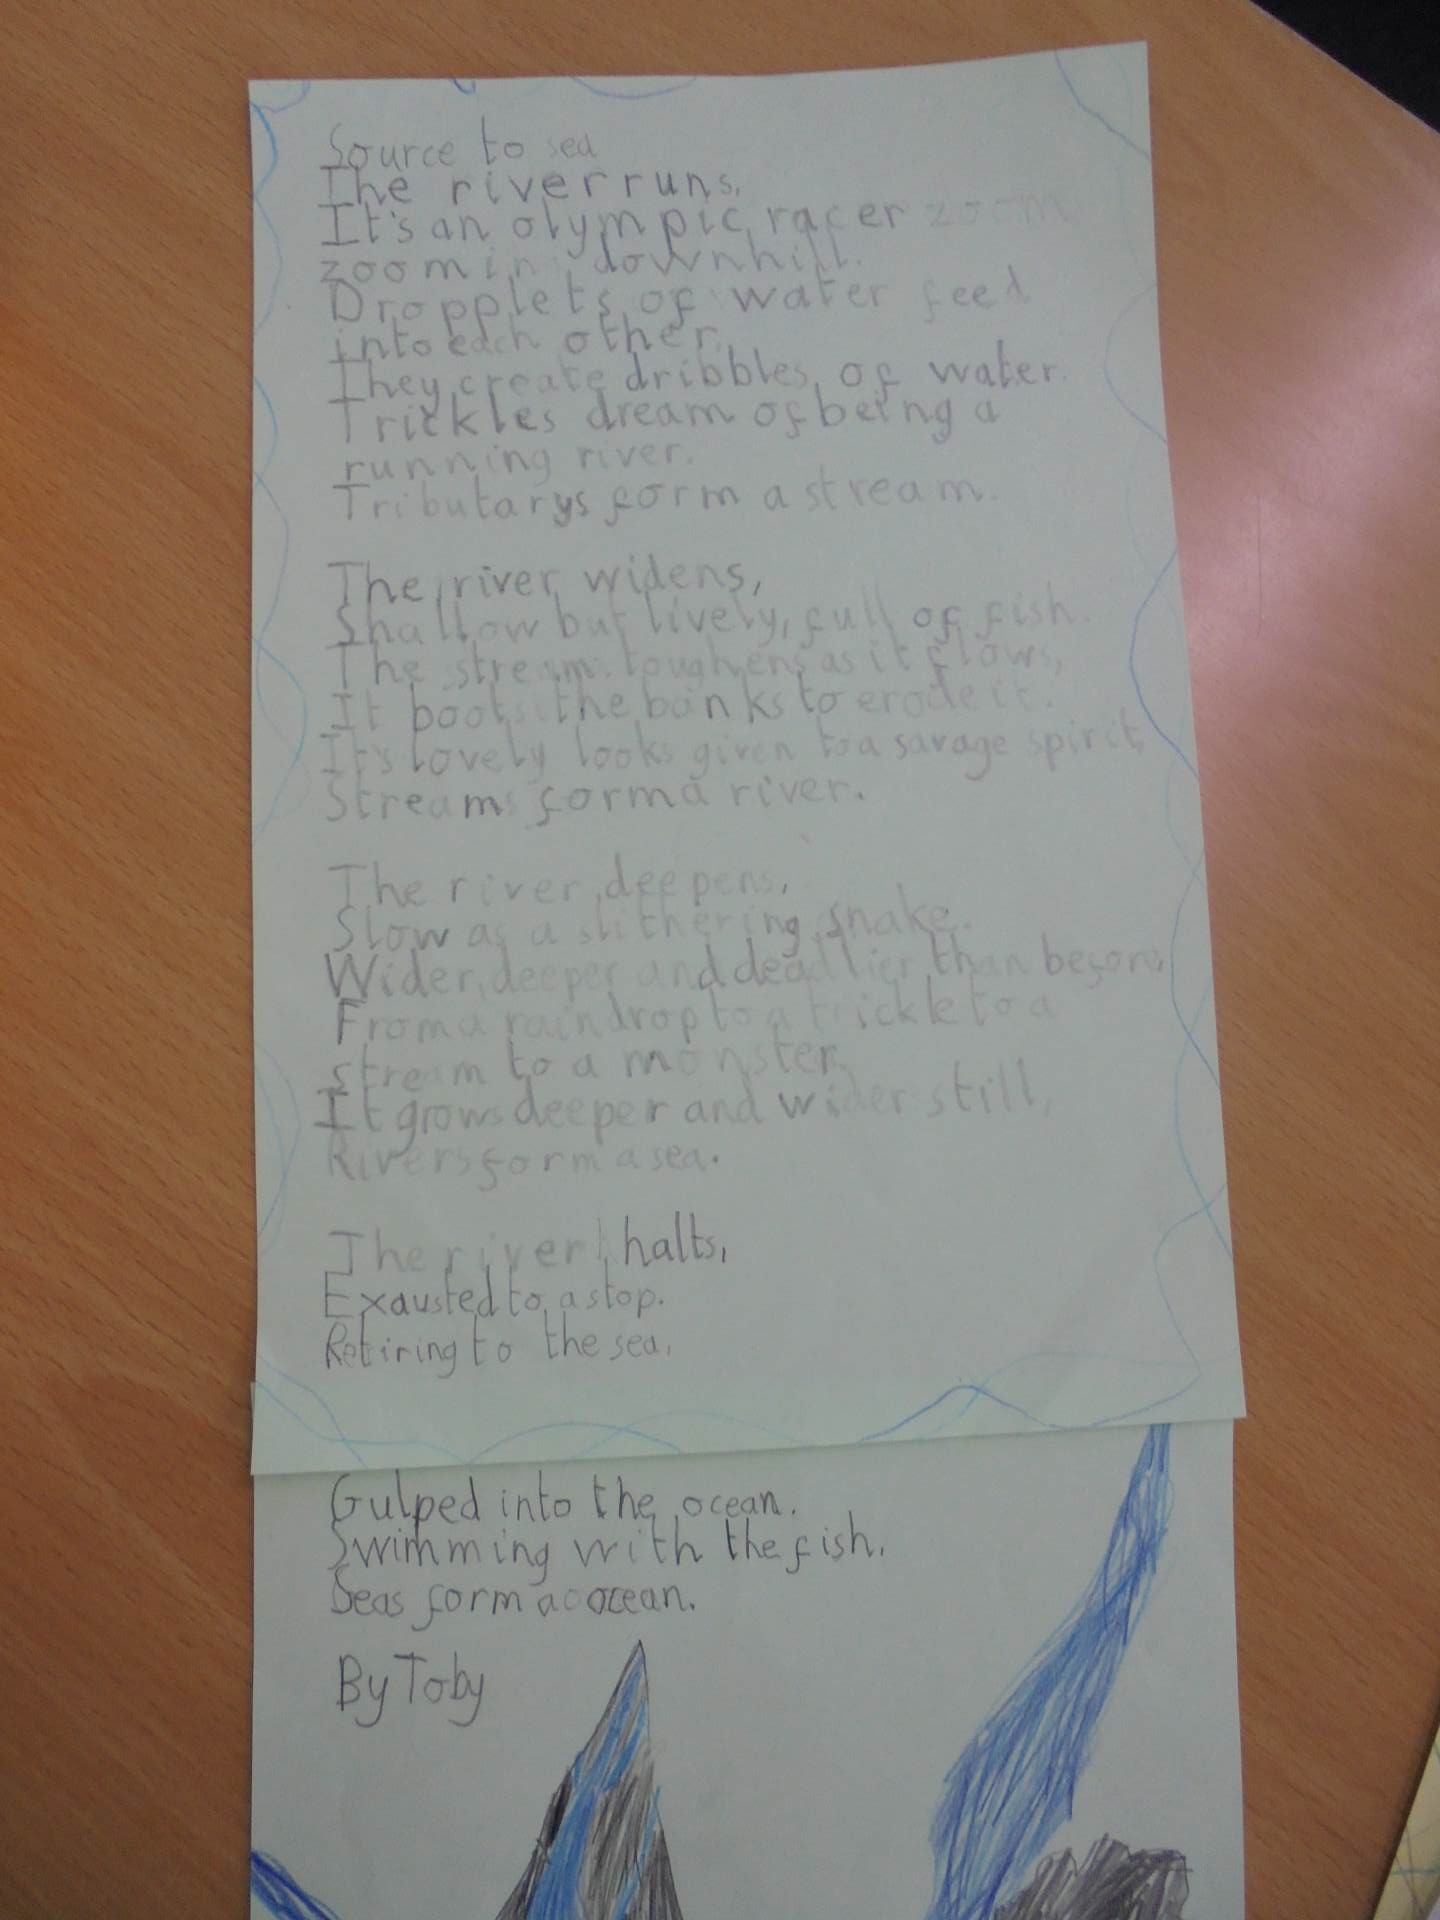 Source to sea
The river runs,
It's an olympic racer zoom
zoomin downhill.
Dropplets of water feed
into each other,
They create dribbles of water.
Trickles dream of being a
running river.
Tributarys form a stream.
The river widens,
Shallow but lively, full of fish.
The stream toughens as it flows,
It boots the banks to erode it.
It's lovely looks given to a savage spirit,
Streams form a river.
The river deepens,
Slow as a slithering snake.
Wider, deeper and deadlier than before,
From a raindrop to a trickle to a
stream to a monster,
It grows deeper and wider still,
Rivers form a sea.
The river halts,
Exausted to a stop.
Retiring to the sea,
Gulped into the ocean.
Swimming with the fish,
Seas form a ocean.
By Toby